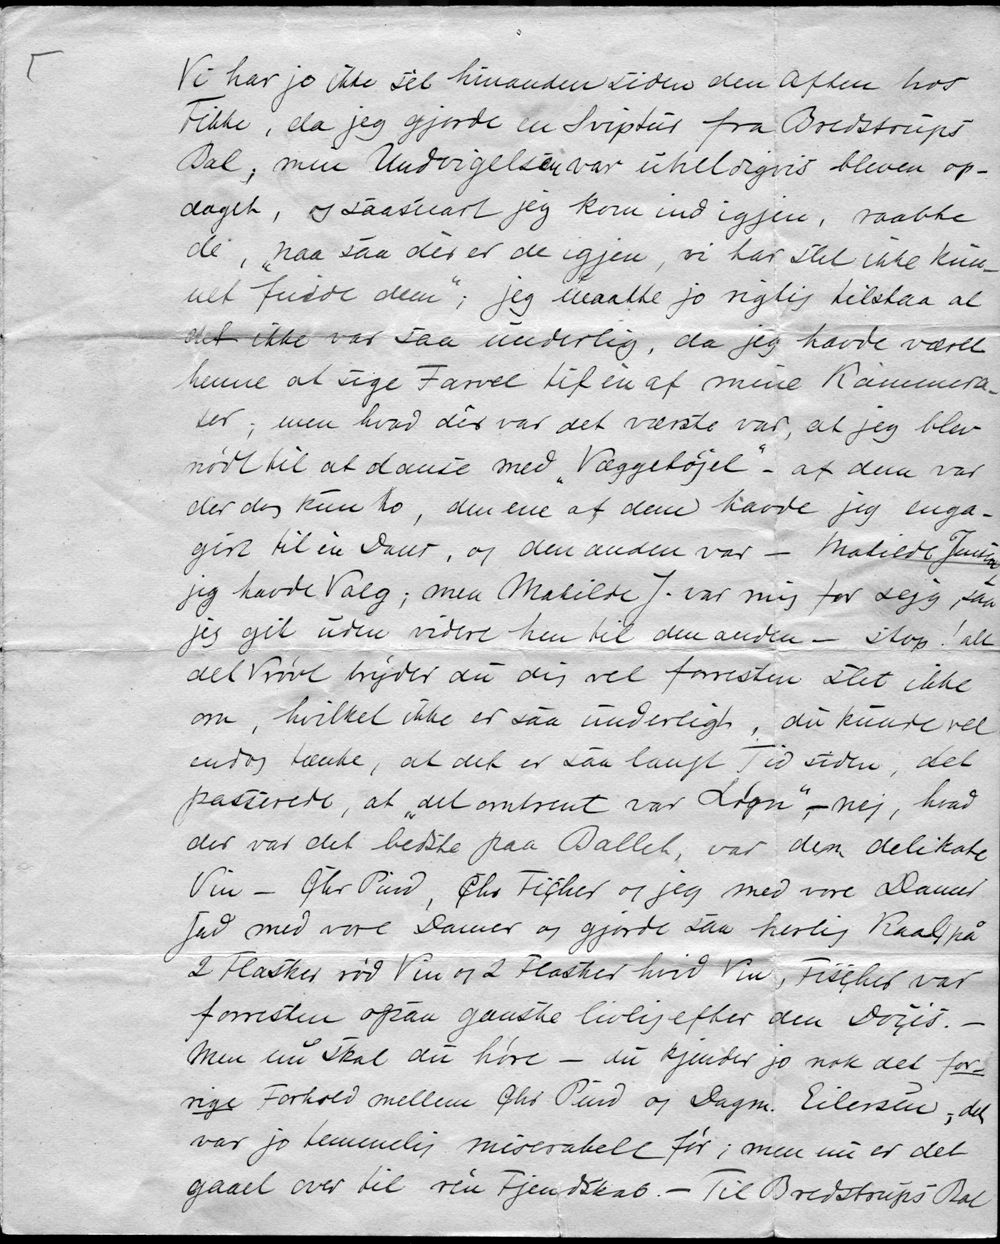 Vi har jo ikke set hinanden siden den Aften hos
Fikke, da jeg gjorde en Sviptur fra Bredstrups
Bal; men Undvigelsen var uheldigvis bleven op-
daget, og saasnart jeg kom ind igjen, raabte
de, „naa saa dér er de igjen, vi har slet ikke kun-
net finde dem“; jeg maatte jo rigtig tilstaa at
det ikke var saa underlig, da jeg havde været
henne at sige Farvel til én af mine Kammera-
ter; men hvad dér var det værste var, at jeg blev
nødt til at danse med „Væggetøjet“ - af dem var
der dog kun to, den ene af dem havde jeg enga-
gért til én Dans, og den anden var — Matilde
jeg havde Valg; men Matilde J. var mig for sejg, saa
jeg gik uden videre hen til den anden — stop! alt
det Vrøvl bryder du dig vel forresten slet ikke
om, hvilket ikke er saa underligt, du kunde vel
endog tænke, at det er saa langt Tid siden, det
passerede, at „det omtrent var Løgn“, - nej, hvad
der var det bedste paa Ballet, var den delikate
Vin — Chr Pind, Chr Fischer og jeg med vore Damer
sad med vore Damer og gjorde saa herlig Kaal på
2 Flasker rød Vin og 2 Flasker hvid Vin, Fischer var
forresten ogsaa ganske livlig efter den Dosis. —
Men nu skal du høre — du kjender jo nok det for-
rige Forhold mellem Chr Pind og Dagm. Eilersen, det
var jo temmelig miserabelt før; men nu er det
gaaet over til rén Fjendskab. — Til Bredstrups Bal